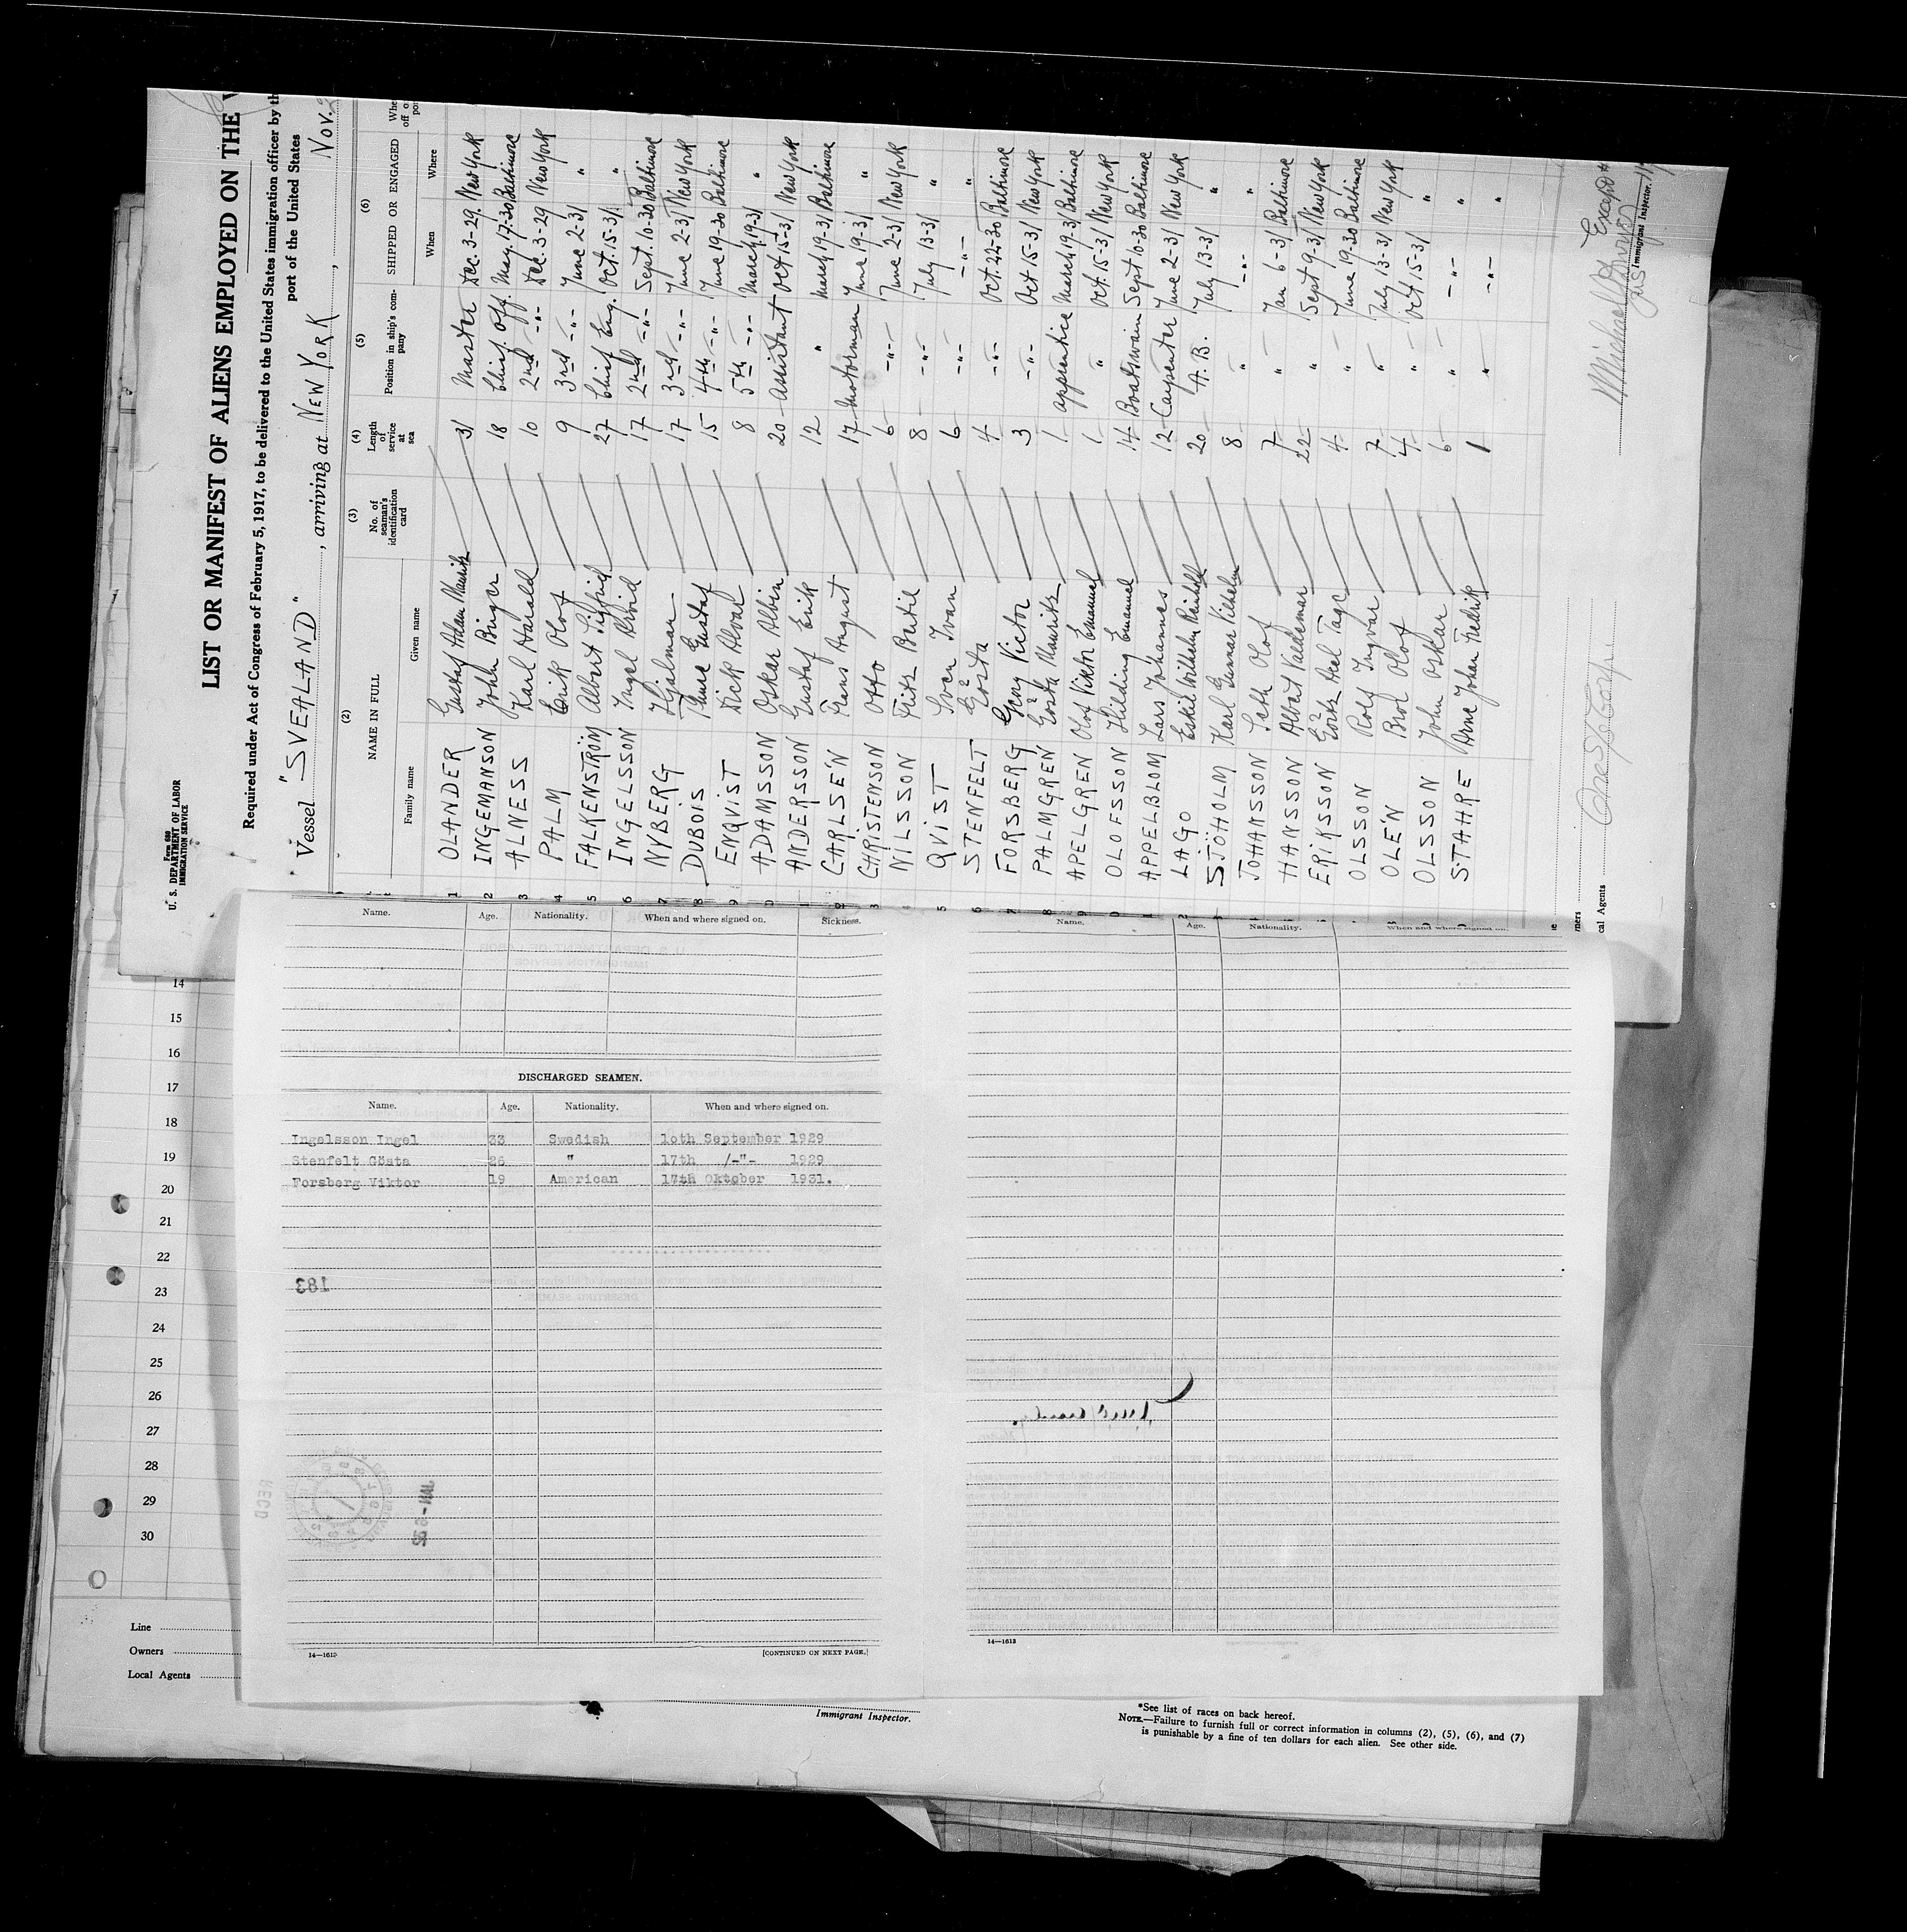 Form 680
U. S. DEPARTMENT OF LABOR
IMMIGRATION SERVICE
LIST OR MANIFEST OF ALIENS EMPLOYED ON THE
Required under Act of Congress of February 5, 1917, to be delivered to the United States immigration officer by th
port of the United States
Vessel "SVEALAND", arriving at NEW YORK, Nov.
(2) (3) (4) (5) (6)
NAME IN FULL No. of seaman's identification card Length of service at sea Position in ship's company SHIPPED OR ENGAGED
Family name Given name When Where
1 OLANDER Gustaf Adam Mauritz 31 Master Dec. 3-29. New York
2 INGEMANSON John Birger 18 Chief. Off. May. 17-30 Baltimore
3 ALNESS Karl Harald 10 2nd -"- Dec 3-29 New York
4 PALM Erik Olof 9 3rd -"- June 2-31 "
5 FALKENSTRÖM Albert Sigfrid 27 Chief Eng. Oct. 15-31. "
6 INGELSSON Ingel Arvid 17 2nd -"- Sept. 10-30 Baltimore
7 NYBERG Hjalmar 17 3rd -"- June 2-31 New York
8 DUBOIS Thure Gustaf 15 4th -"- June 19-30 Baltimore
9 ENQVIST Dick Alvar 8 5th -"- March 19-31 "
0 ADAMSSON Oskar Albin 20 Assistant Oct 15-31 New York
1 ANDERSSON Gustaf Erik 12 " March 19-31 Baltimore
2 CARLSÉN Frans August 17 Motorman June 19-31 "
3 CHRISTENSON Otto 6 -"- June 2-31 New York
4 NILSSON Fritz Bertil 8 -"- July 13-31 "
5 QVIST Sven Ivan 6 -"- -"- "
6 STENFELT Gösta 4 -"- Oct. 22-30 Baltimore
7 FORSBERG Georg Victor 3 -"- Oct 15-31 New York
8 PALMGREN Gösta Mauritz 1 apprentice March 19-31 Baltimore
9 APELGREN Olof Viktor Emanuel 1 " Oct. 15-31 New York
0 OLOFSSON Hilding Emanuel 14 Boatswain Sept 10-30 Baltimore
1 APPELBLOM Lars Johannes 12 Carpenter June 2-31 New York
2 LAGO Eskil Wilhelm Reinhold 20 A. B. July 13-31 "
3 SJÖHOLM Karl Gunnar Vilhelm 8 " -"- "
JOHANSSON Seth Olof 7 " Jan 6-31 Baltimore
HANSSON Albert Valdemar 22 " Sept 9-31 New York
ERIKSSON Gösta Axel Tage 4 " June 19-30 Baltimore
OLSSON Rolf Ingvar 7 " July 13-31 New York
OLÉN Brol Olof 4 " Oct 15-31 "
OLSSON John Oskar 6 " -"- "
STAHRE Arne Johan Fredrik 1 " -"- "
ners
cal Agents
Except #
Immigrant Inspector.
Name. Age. Nationality. When and where signed on. Sickness.
Name. Age. Nationality. When and where signed
DISCHARGED SEAMEN.
Name. Age. Nationality. When and where signed on.
Ingelsson Ingel 33 Swedish 10th September 1929
Stenfelt Gösta 26 " 17th /-"- 1929
Forsberg Viktor 19 American 17th Oktober 1931.
183
RECD
14—1613
[CONTINUED ON NEXT PAGE.]
14—1613
14
15
16
17
18
19
20
21
22
23
24
25
26
27
28
29
30
Line
Owners
Local Agents
Immigrant Inspector.
*See list of races on back hereof.
NOTE.—Failure to furnish full or correct information in columns (2), (5), (6), and (7)
is punishable by a fine of ten dollars for each alien. See other side.